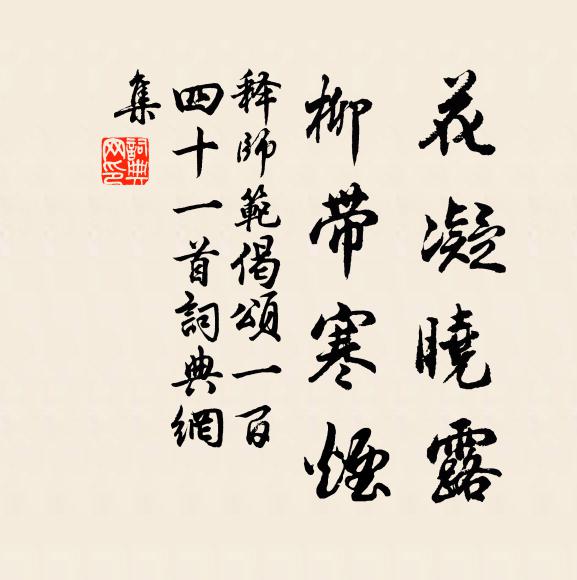 花凝曉露
柳帶寒煙
释師範偈頌一百
四十一首詞典網
集
詞典網印